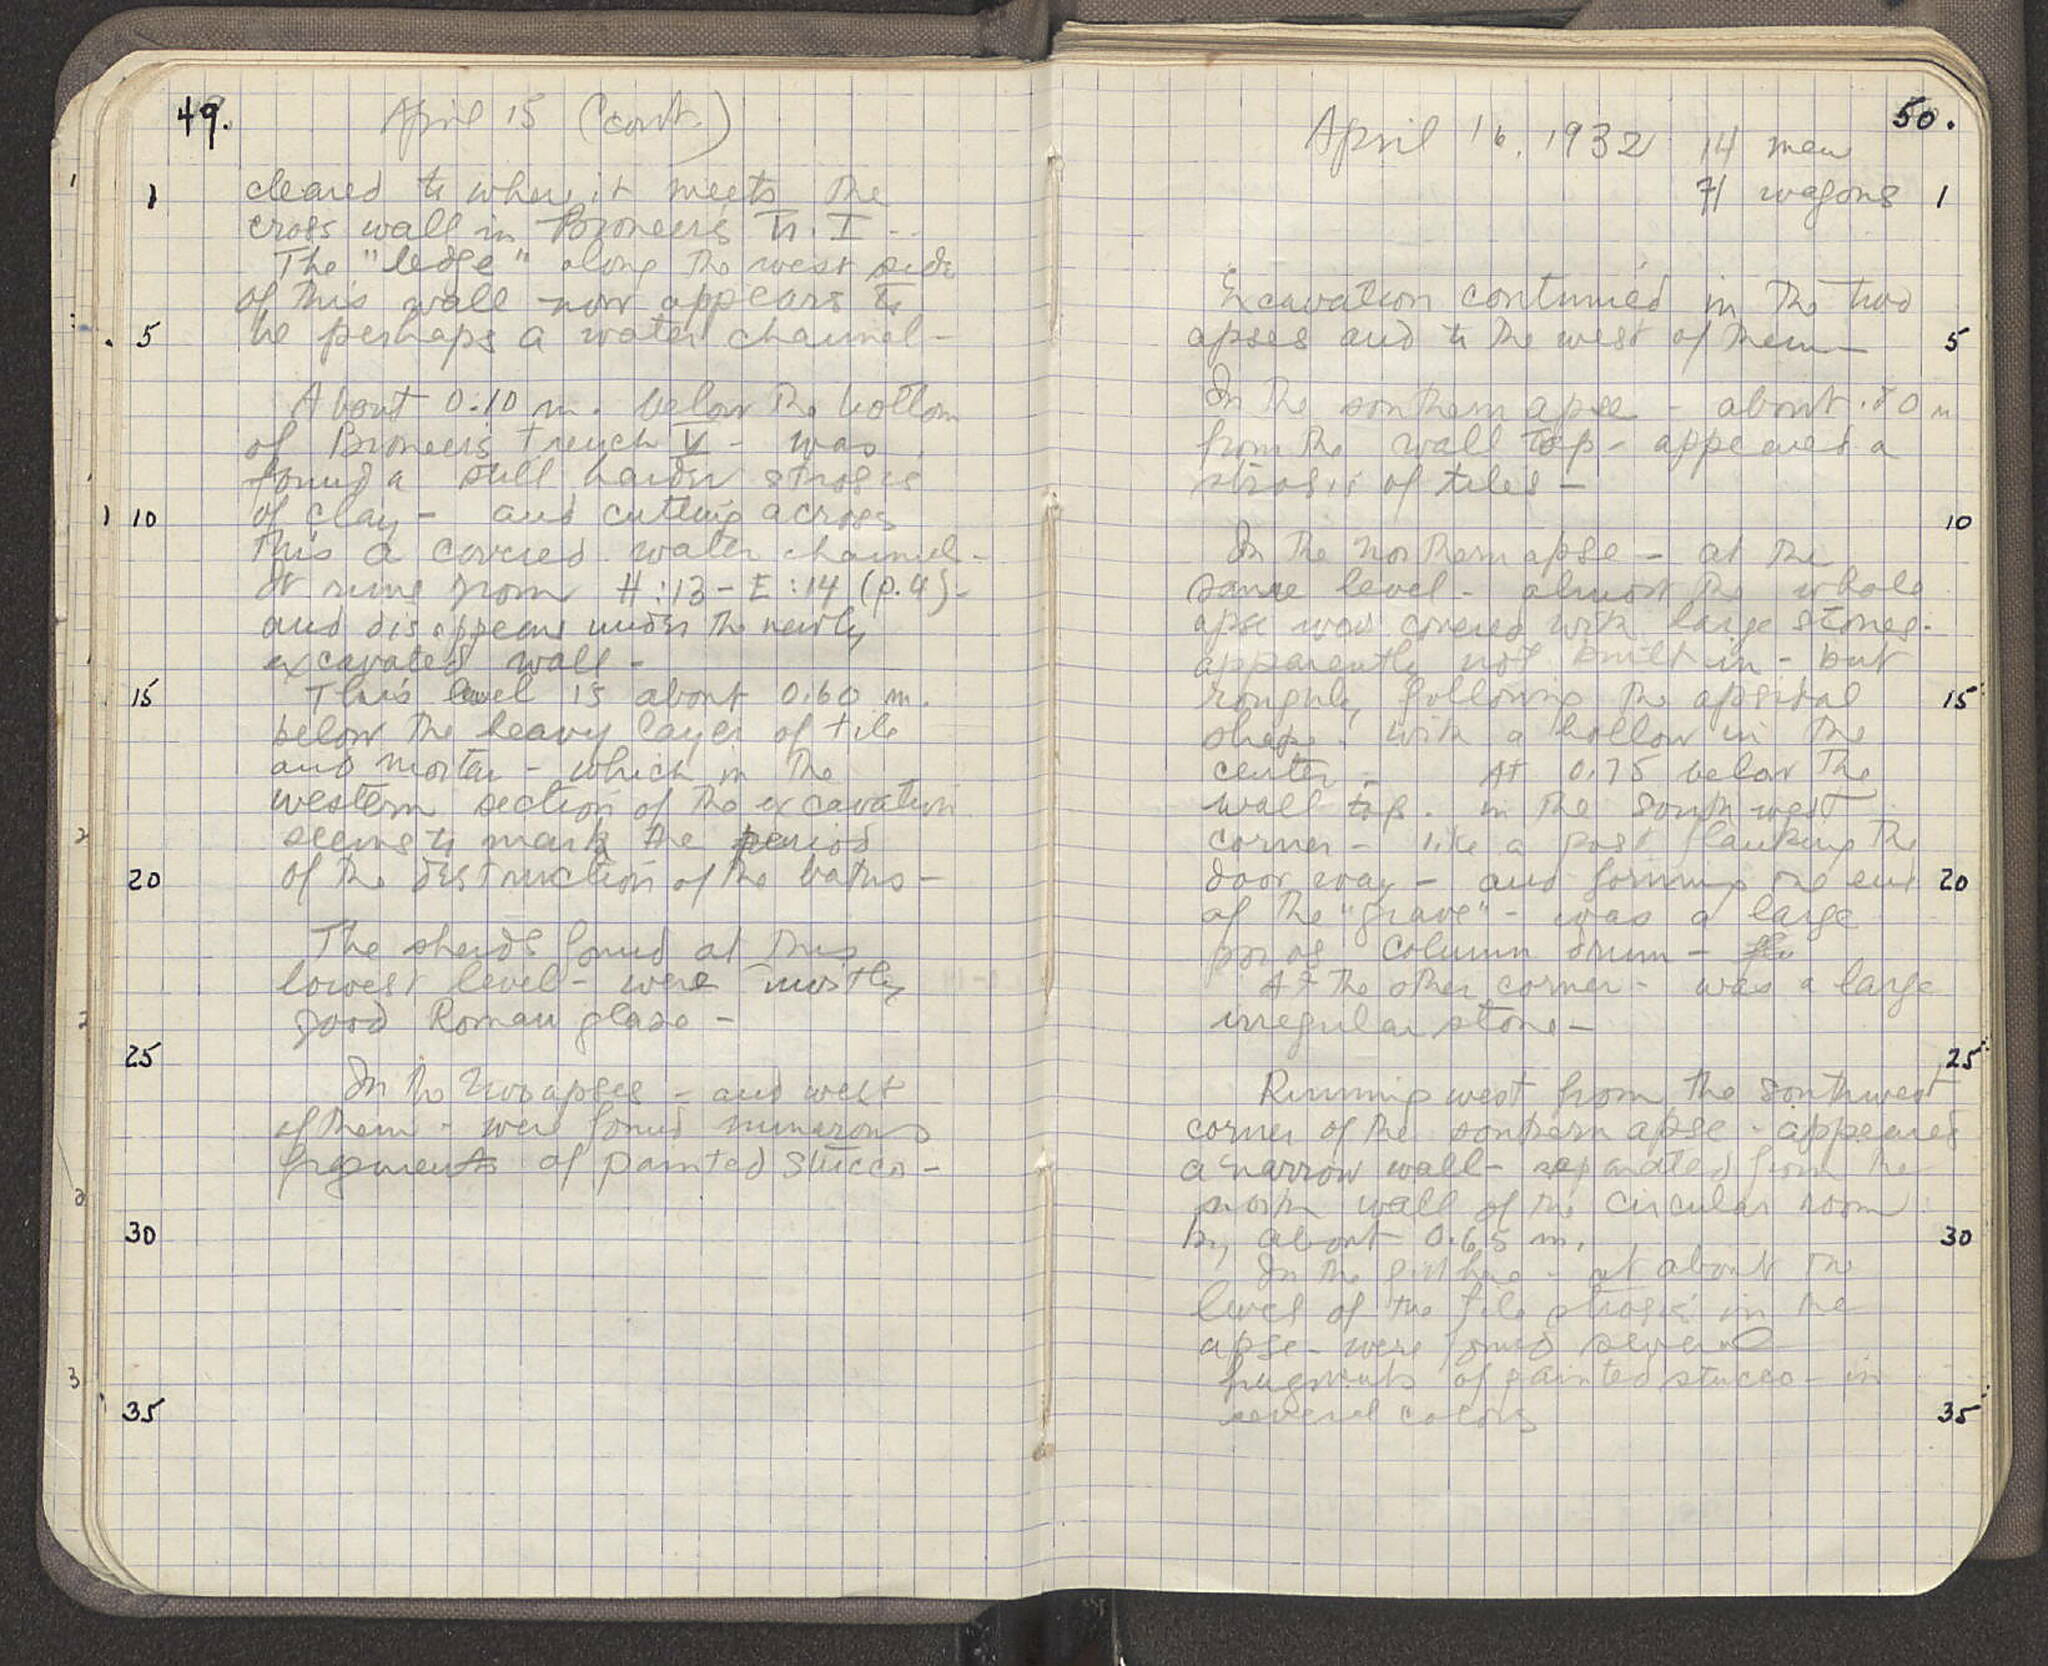 49.
April 15 (cont.)
1
cleared to where it meets the
cross wall in Broneer's Tr. I --
The "ledge" along the west side
of this wall now appears to
5
be perhaps a water channel -
About 0.10 m. below the bottom
of Broneer's trench V - was
found a still harder strosis
10
of clay - and cutting across
this a covered water channel -
It runs from H:13 - E:14 (p.9) -
and disappears under the newly
excavated wall -
15
This level is about 0.60 m.
below the heavy layer of tile
and mortar - which in the
western section of the excavation
seems to mark the period
20
of the destruction of the baths -
The sherds found at this
lowest level - were mostly
good Roman glaze -
25
In the two apses - and west
of them - were found numerous
fragments of painted stucco -
30
35
50.
April 16, 1932 14 men
71 wagons
1
Excavation continued in the two
apses and to the west of them -
5
In the southern apse - about .80 m
from the wall top - appeared a
strosis of tiles -
10
In the northern apse - at the
same level - almost the whole
apse was covered with large stones -
apparently not built in - but
roughly following the apsidal
15
shape - with a hollow in the
center - At 0.75 below the
wall top - in the southwest
corner - like a post flanking the
door way - and forming one end
20
of the "grave" - was a large
poros column drum -
At the other corner - was a large
irregular stone -
25
Running west from the southwest
corner of the southern apse - appeared
a narrow wall - separated from the
north wall of the circular room
by about 0.65 m.
30
In the - at about the
level of the tile strosis in the
apse - were found several
fragments of painted stucco - in
several colors
35